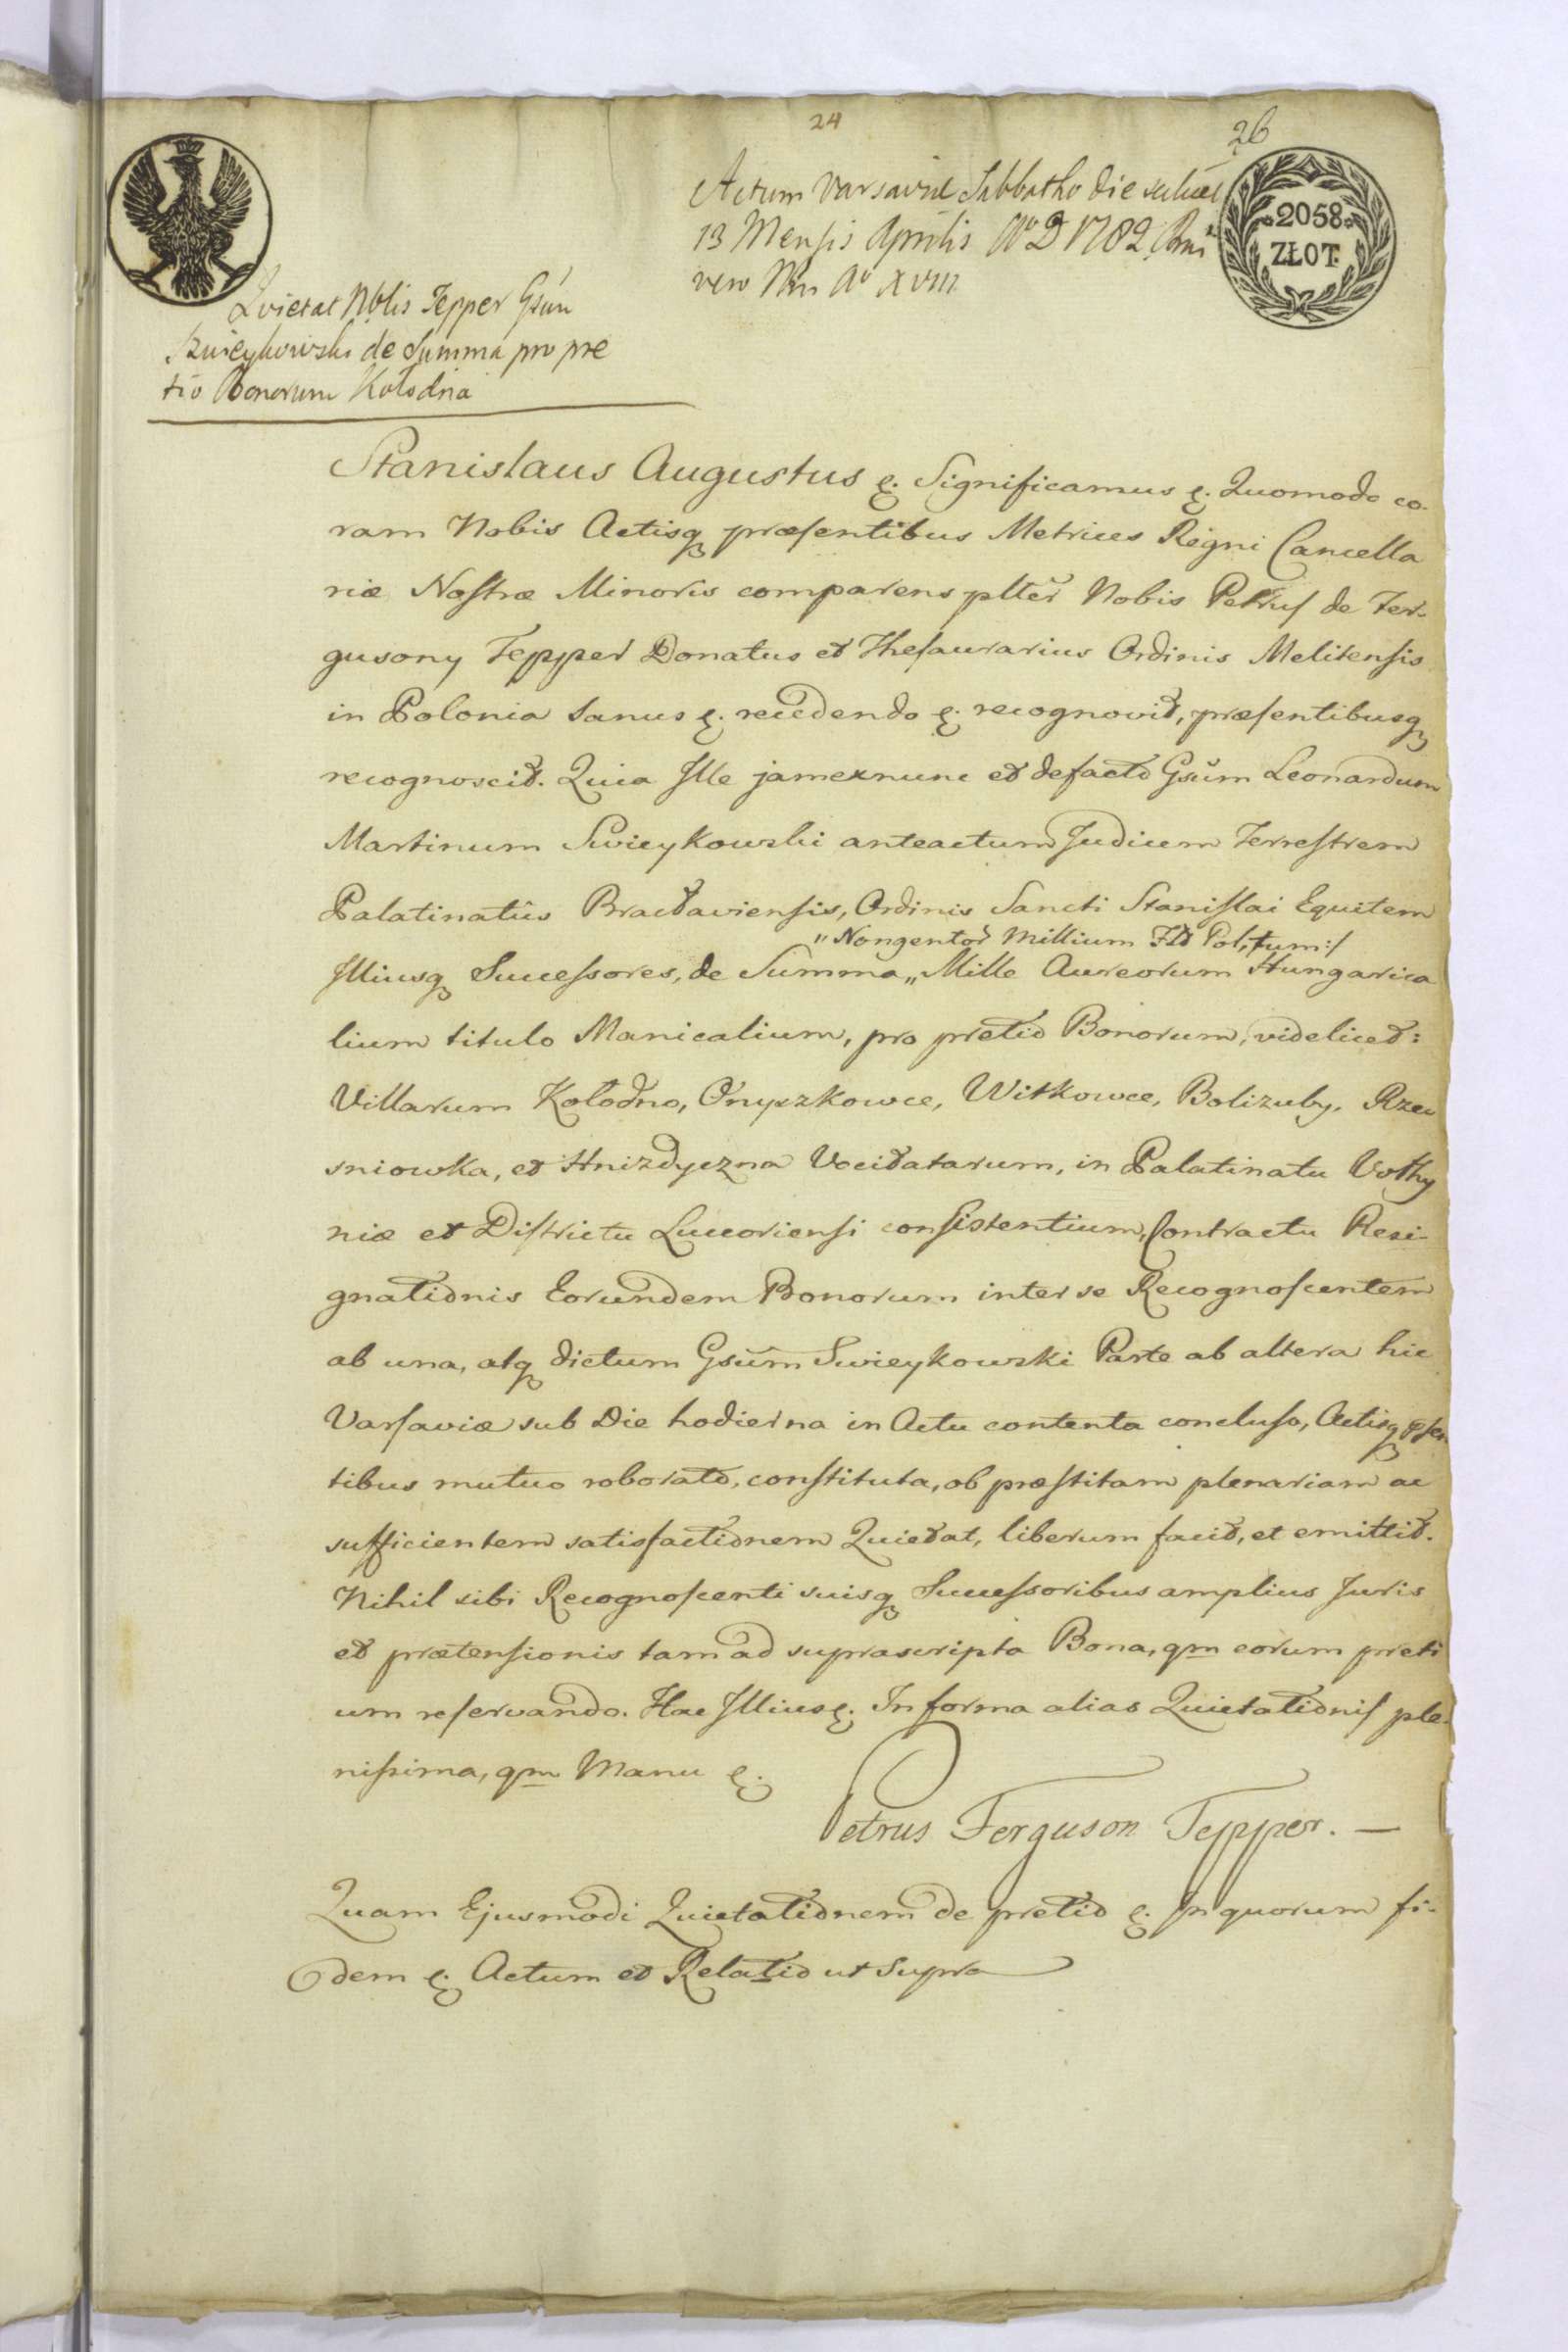 24
26
Actum Varsaviæ Sabbatho die
13 Mensis Aprilis Ao D 1782
vero Nri Ao XVIII
2058
ZŁOT.
Quietat Nblis Tepper Gsum
Swieykowski de Summa pro pre
tio Bonorum Kołodna
Stanislaus Augustus &. Significamus &. Quomodo co-
ram Nobis Actisq præsentibus Metrices Regni Cancella
riæ Nostræ Minoris comparens plter Nobis Petrus de Fer-
gusony Tepper Donatus et Thesaurarius Ordinis Melitensis
in Polonia sanus &. recedendo &. recognovit, præsentibusq
recognoscit. Quia Ille jamexnunc et defacto Gsum Leonardum
Martinum Swieykowski anteactum Judicem Terrestrem
Palatinatûs Bracłaviensis, Ordinis Sancti Stanislai Equitem
„Nongentor Millium Fld Pol, tum:/
Illiusq Successores, de Summa „ Mille Aureorum Hungarica
lium titulo Manicalium, pro pretio Bonorum, videlicet:
Villarum Kołodno, Onyszkowce, Witkowce, Bolizuby, Rzeu
sniowka, et Hnizdyczna Vocitatarum, in Palatinatu Volhy
niæ et Districtu Luceoriensi consistentium, Contractu Resi-
gnationis Eorundem Bonorum inter se Recognoscentem
ab una, atq dictum Gsum Swieykowski Parte ab altera hic
Varsaviæ sub Die hodierna in Actu contenta concluso, Actisq psen
tibus mutuo roborato, constituta, ob præstitam plenariam ac
sufficientem satisfactionem Quietat, liberum facit, et emittit.
Nihil sibi Recognoscenti suisq Successoribus amplius Juris
et prætensionis tam ad suprascripta Bona, qm eorum preti
um reservando. Hac Illius &. In forma alias Quietationis ple-
nissima, qm Manu &.
Petrus Ferguson Tepper. —
Quam Ejusmodi Quietationem de pretio &. In quorum fi-
dem &. Actum et Relatio ut supra